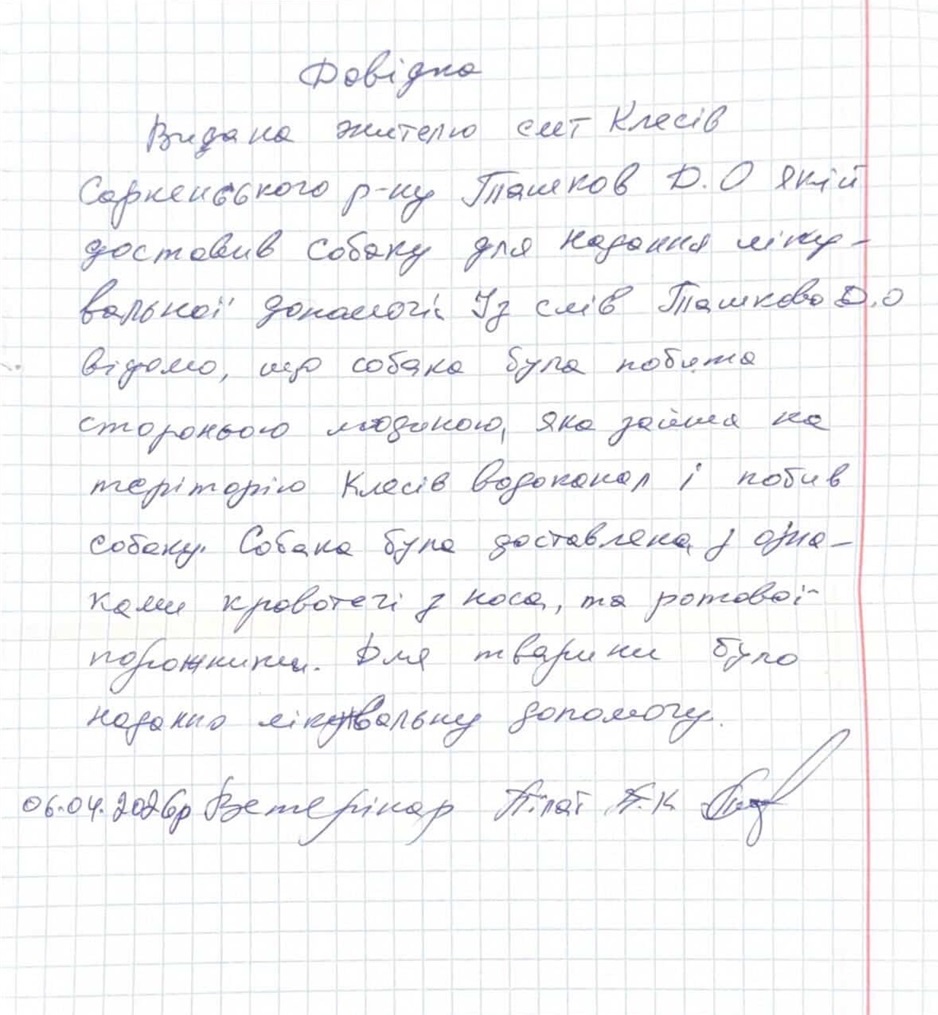 Довідка
Видана жителю смт Клесів
Сарненського р-ну Ташков Д.О який
доставив собаку для надання ліку-
вальної допомогі. Із слів Ташково Д.О
відомо, що собака була побита
стороньою людиною, яка зайшла на
теріторію Клесів водоканал і побив
собаку. Собака була доставлена з озна-
ками кровотечі з носа, та ротової
порожнини. Для тварини було
надано лікувальну допомогу.
06.04.2026р Ветерінар Пілат А.К